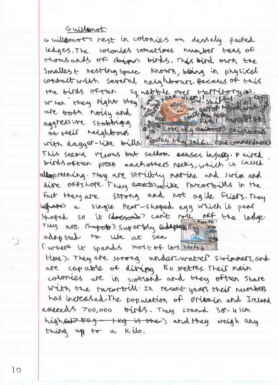 Guillemot
Guillemots nest in colonies on densely packed
ledges. The colonies sometimes number tens of
thousands of birds. This bird owns the
smallest nesting space known, being in physical
contact with several neighbours. Because of this
the birds often squabble over territory.
When they fight they
are both noisy and
aggressive stabbing
at their neighbours
with dagger-like bills
This seems vicious but seldom causes injury. Mated
birds often preen each others necks, which is called
allopreening. They are strictly marine and swim and
dive offshore. They like razorbills in the
fact they are strong and not agile fliers. They
a single Pear-shaped egg which is pear
shaped so it can't role off the ledge
They are superbly
adapted to life at sea
(where it spends most of its
time). They are strong underwater swimmers, and
are capable of diving metres. Their main
colonies are in Scotland and they often share
with the razorbill. In recent years their numbers
had increased. The population of Britain and Ireland
exceeds 700,000 birds. They stand 38-41cm
high and they weigh any
thing up to a Kilo.
10